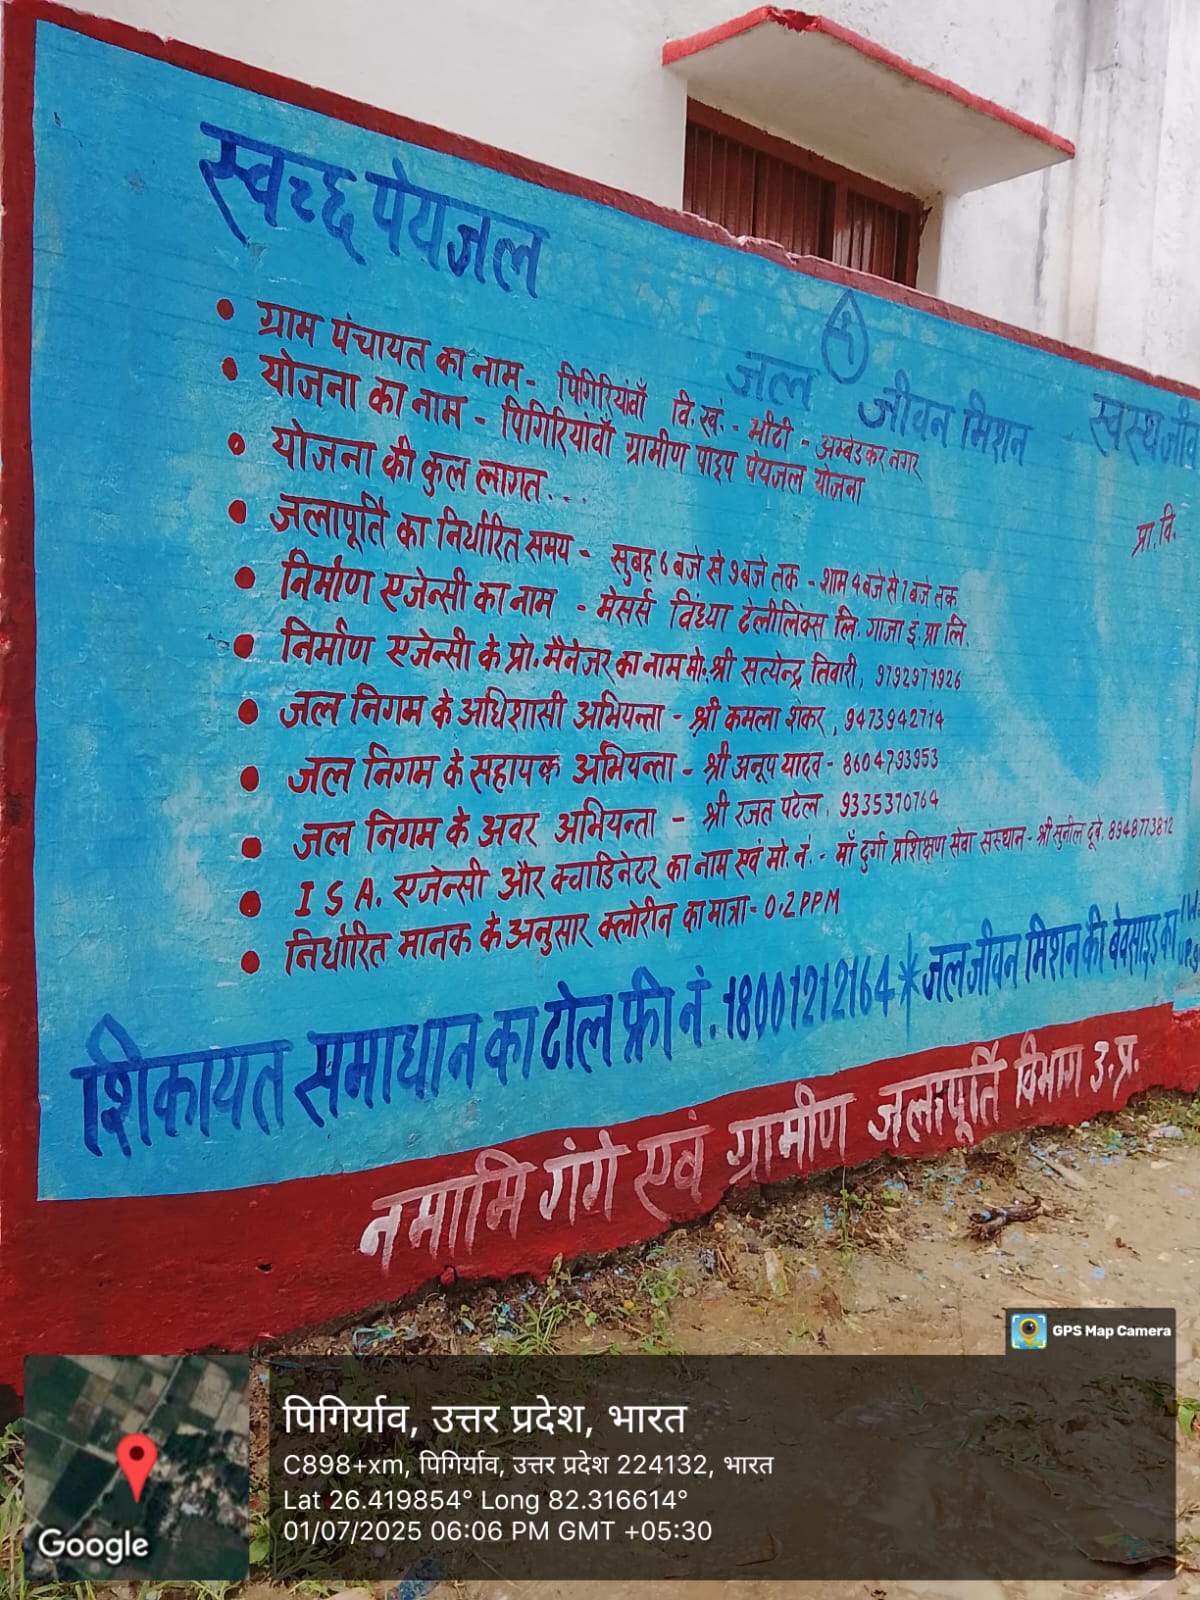 स्वच्छ पेयजल
जल जीवन मिशन
स्वस्थ जीव
प्रा.वि.
• ग्राम पंचायत का नाम - पिगिरियांवाँ वि.खं. - भीटी - अम्बेडकर नगर
• योजना का नाम - पिगिरियांवाँ ग्रामीण पाइप पेयजल योजना
• योजना की कुल लागत...
• जलापूर्ति का निर्धारित समय - सुबह 6 बजे से 9 बजे तक - शाम 4 बजे से 7 बजे तक
• निर्माण एजेन्सी का नाम - मेसर्स विंध्या टेलीलिंक्स लि. गाजा इं. प्रा लि.
• निर्माण एजेन्सी के प्रो. मैनेजर का नाम मो. श्री सत्येन्द्र तिवारी, 9792971926
• जल निगम के अधिशासी अभियन्ता - श्री कमला शंकर, 9473942714
• जल निगम के सहायक अभियन्ता - श्री अनूप यादव - 8604793953
• जल निगम के अवर अभियन्ता - श्री रजत पटेल, 9335370764
• I S A. एजेन्सी और क्वाडिनेटर का नाम एवं मो. नं. - माँ दुर्गा प्रशिक्षण सेवा संस्थान - श्री सुनील दूबे. 8948773812
• निर्धारित मानक के अनुसार क्लोरीन का मात्रा - 0.2 PPM
शिकायत समाधान का टोल फ्री नं. 18001212164 * जल जीवन मिशन की बेवसाइड का
नमामि गंगे एवं ग्रामीण जलापूर्ति विभाग उ.प्र.
GPS Map Camera
पिगिर्याव, उत्तर प्रदेश, भारत
C898+xm, पिगिर्याव, उत्तर प्रदेश 224132, भारत
Lat 26.419854° Long 82.316614°
01/07/2025 06:06 PM GMT +05:30
Google